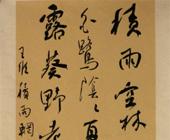 積雨空林
白鷺陰々夏
露葵野老
王維積雨輞